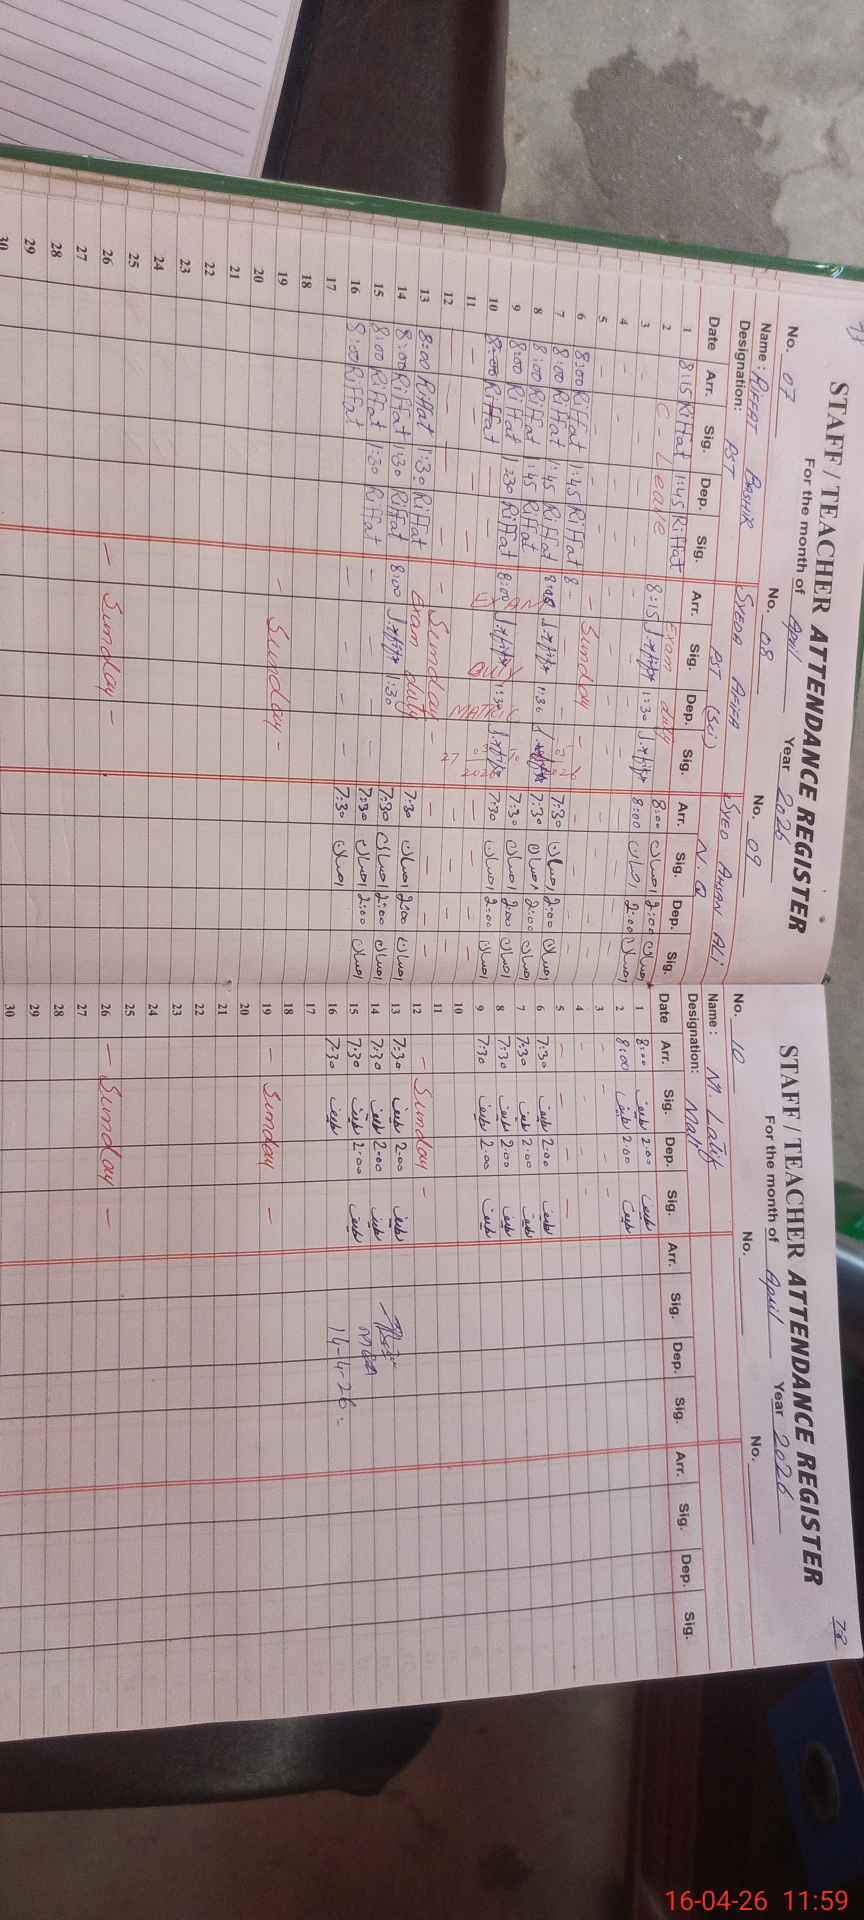 77
STAFF / TEACHER ATTENDANCE REGISTER
For the month of April Year 2026
No. 07 No. 08 No. 09
Name: RIFFAT BASHIR SYEDA AFIFA SYED AHSAN ALI
Designation: PST PST (Sci) N.Q
Date Arr. Sig. Dep. Sig. Arr. Sig. Dep. Sig. Arr. Sig. Dep. Sig.
1 8:15 Riffat 1:45 Riffat Exam duty 8:00 احسان 2:00 احسان
2 C - Leave 8:15 1:30 8:00 احسان 2:00 احسان
3 - - - -
4 - - - -
5 - - - - - Sunday -
6 8:00 Riffat 1:45 Riffat 8 - 7:30 احسان 2:00 احسان
7 8:00 Riffat 1:45 Riffat 8:00 1:30 7:30 احسان 2:00 احسان
8 8:00 Riffat 1:45 Riffat EXAM DUTY MATRIC 7:30 احسان 2:00 احسان
9 8:00 Riffat 1:30 Riffat 8:00 1:30 7:30 احسان 2:00 احسان
10 8:00 Riffat - -
11 - - - -
12 - - - - - Sunday -
13 8:00 Riffat 1:30 Riffat Exam duty 7:30 احسان 2:00 احسان
14 8:00 Riffat 1:30 Riffat 8:00 1:30 7:30 احسان 2:00 احسان
15 8:00 Riffat 1:30 Riffat - - - - 7:30 احسان 2:00 احسان
16 8:00 Riffat - - - - 7:30 احسان
17
18
19 - Sunday -
20
21
22
23
24
25
26 - Sunday -
27
28
29
30
78
STAFF / TEACHER ATTENDANCE REGISTER
For the month of April Year 2026
No. 10 No. No.
Name: M. Latif
Designation: Mali
Date Arr. Sig. Dep. Sig. Arr. Sig. Dep. Sig. Arr. Sig. Dep. Sig.
1 8:00 لطیف 2:00 لطیف
2 8:00 لطیف 2:00 لطیف
3 - - -
4 - - -
5 - - - -
6 7:30 لطیف 2:00 لطیف
7 7:30 لطیف 2:00 لطیف
8 7:30 لطیف 2:00 لطیف
9 7:30 لطیف 2:00 لطیف
10
11
12 - Sunday -
13 7:30 لطیف 2:00 لطیف
14 7:30 لطیف 2:00 لطیف
15 7:30 لطیف 2:00 لطیف
16 7:30 لطیف
MEA
14-4-26
17
18
19 - Sunday -
20
21
22
23
24
25
26 - Sunday -
27
28
29
30
16-04-26 11:59